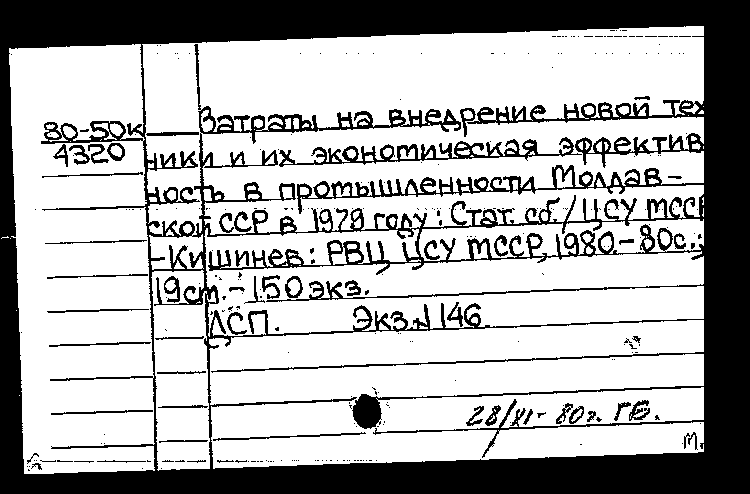 80-50к
4320
Затраты на внедрение новой тех
ники и их экономическая эффектив
ность в промышленности Молдав-
ской ССР в 1979 году: Стат. сб./ЦСУ МССР
-Кишинев: РВЦ ЦСУ МССР, 1980.-80с.;
19 см.-150 экз.
ДСП. Экз.N 146
28/XI-80г. ГБ.
м.